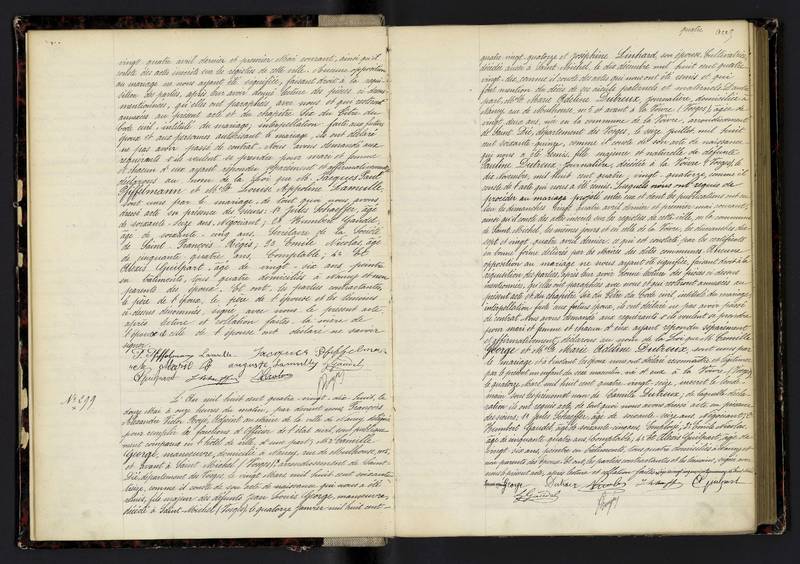 vingt quatre avril dernier et premier Mai courant, ainsi qu'il
conste des actes inscrits sur les registres de cette ville. Aucune opposition
au mariage ne nous ayant été signifiée, faisant droit à la réqui
sition des parties, après leur avoir donné lecture des pièces ci dessus
mentionnées, qui elles ont paraphées avec nous et qui resteront
annexées au présent acte et du chapitre six du titre du
Code civil, intitulé du mariage, interpellation faite aux futurs
époux et aux personnes autorisant le mariage, ils ont déclaré
ne pas avoir passé de contrat. Nous avons demandé aux
requérants s'ils veulent se prendre pour mari et femme
et chacun d'eux ayant répondu séparément et affirmativement
déclarons au nom de la Loi que M. Jacques Paul
Pfiffelmann et Melle Louise Appoline Lamielle
sont unis par le mariage, de tout quoi nous avons
dressé acte en présence des sieurs: 1° Jules Schaeffer, âgé
de soixante seize ans, Négociant; 2° Humbert Gandel,
âgé de soixante cinq ans, Secrétaire de la Société
de Saint François Régis; 3° Emile Nicolas, âgé
de cinquante quatre ans, Comptable; 4° Et
Alexis Guilpart, âgé de vingt six ans, peintre
en bâtiments, tous quatre domiciliés à Nancy et non
parents des époux. Et ont, les parties contractantes
le père de l'époux, le père de l'épouse et les témoins
ci-dessus dénommés, signé avec nous le présent acte,
après lecture et collation faites, la mère de
l'époux et celle de l'épouse ont déclaré ne savoir
signer.
Lamielle Jacques Pfiffelmann
Guilpart Nicolas Gandel
N° 299
L'An mil huit cent quatre vingt dix huit, le
douze Mai à onze heures du matin, par devant nous François
Alexandre Victor Adjoint au Maire de la ville de Nancy, délégué
pour remplir les fonctions d'Officier de l'état civil, sont publique
ment comparus en l'hôtel de ville, d'une part, M. Camille
George, manoeuvre, domicilié à Nancy, rue de Mulhouse,
et avant à Saint Michel (Vosges), arrondissement de Saint
Dié, département des Vosges, le vingt Mars mil huit cent soixante
seize, comme il conste de son acte de naissance qui nous a été
remis, fils majeur des défunts Jean Louis George, manoeuvre,
décédé à Saint Michel (Vosges), le quatorze Janvier mil huit cent
quatre vingt quatorze et Joséphine Linhard, son épouse, cultivatrice,
décédée aussi à Saint Michel, le dix décembre mil huit cent quatre
vingt dix, comme il conste des actes qui nous ont été remis et qui
font mention du décès de ses aïeuls paternels et maternels. D'autre
part, Melle Marie Adeline Dutreux, journalière, domiciliée à
Nancy, rue de Mulhouse, et avant à la Voivre (Vosges), âgée de
vingt deux ans, née en la commune de la Voivre, arrondissement
de Saint Dié, département des Vosges, le seize Juillet mil huit
cent soixante quinze, comme il conste de son acte de naissance
qui nous a été remis, fille majeure et naturelle de défunte
Pauline Dutreux, journalière, décédée à la Voivre (Vosges), le
dix Novembre, mil huit cent quatre vingt quatorze, comme il
conste de l'acte qui nous a été remis. Lesquels nous ont requis de
procéder au mariage projeté entre eux et dont les publications ont eu
lieu les dimanches vingt quatre avril dernier et premier mai courant,
ainsi qu'il conste des actes inscrits sur les registres de cette ville, en la commune
de Saint Michel, les mêmes jours et en celle de la Voivre, les dimanches dix
sept et vingt quatre avril dernier, ce qui est constaté par les certificats
en bonne forme délivrés par les Maires des dites communes. Aucune
opposition au mariage ne nous ayant été signifiée, faisant droit à la
réquisition des parties, après leur avoir donné lecture des pièces ci dessus
mentionnées, qui elles ont paraphées avec nous et qui resteront annexées au
présent acte et du chapitre six du titre du Code civil, intitulé du mariage,
interpellation faite aux futurs époux, ils ont déclaré ne pas avoir passé
de contrat. Nous avons demandé aux requérants s'ils veulent se prendre
pour mari et femme et chacun d'eux ayant répondu séparément
et affirmativement, déclarons au nom de la Loi que M. Camille
George et Melle Marie Adeline Dutreux, sont unis par
le mariage et à l'instant les époux nous ont déclaré reconnaître et légitimer
par le présent un enfant du sexe masculin, né d'eux à la Voivre (Vosges)
le quatorze Mars mil huit cent quatre vingt seize, inscrit le lende-
main sous les prénoms et nom de Camille Dutreux; de laquelle déclara-
tion, ils ont requis acte, de tout quoi nous avons dressé acte en présence
des sieurs: 1° Jules Schaeffer, âgé de soixante seize ans, Négociant; 2°
Humbert Gandel, âgé de soixante cinq ans, Employé; 3° Emile Nicolas,
âgé de cinquante quatre ans, Comptable; 4° Et Alexis Guilpart, âgé de
vingt six ans, peintre en bâtiments, tous quatre domiciliés à Nancy et
non parents des époux. Et ont, les parties contractantes et les témoins, signé avec
nous le présent acte, après lecture et collation faites
George Dutreux Nicolas Guilpart
Gandel